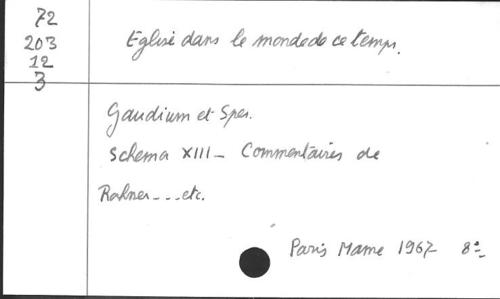 72
203
12
3
Eglise dans le monde de ce temps.
Gaudium et Spes.
Schema XIII - Commentaires de
Rahner --- etc.
Paris Mame 1967 8°-